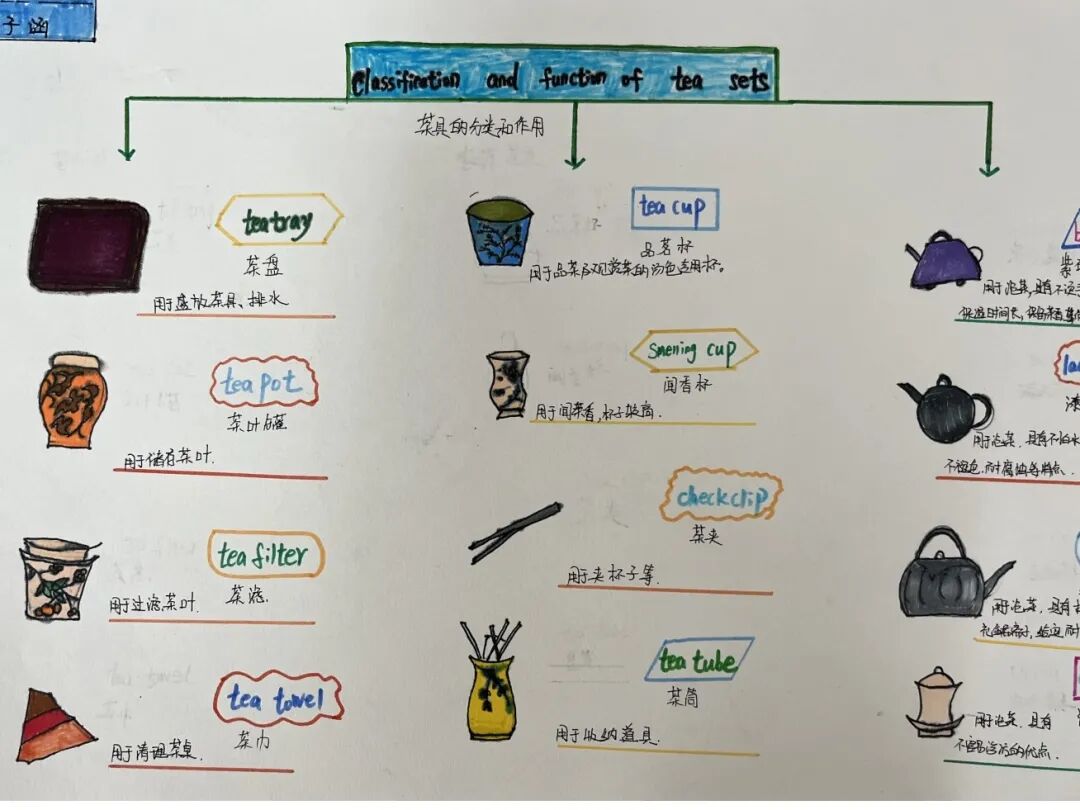 子涵
Classification and function of tea sets
茶具的分类和作用
tea tray
茶盘
用于盛放茶具、排水
tea pot
茶叶罐
用于储存茶叶.
tea filter
茶滤.
用于过滤茶叶.
tea towel
茶巾
用于清理茶桌.
tea cup
品茗杯
用于品茶及观赏茶的汤色适用杯。
Smening cup
闻香杯
用于闻茶香,杯子较高.
check clip
茶夹
用于夹杯子等.
tea tube
茶筒
用于收纳道具.
用于泡茶,具有不
保温时间长,
用于泡茶.具有不怕水
不褪色.耐腐蚀等特点.
用于泡茶,具有
用于泡茶.具有
的优点.